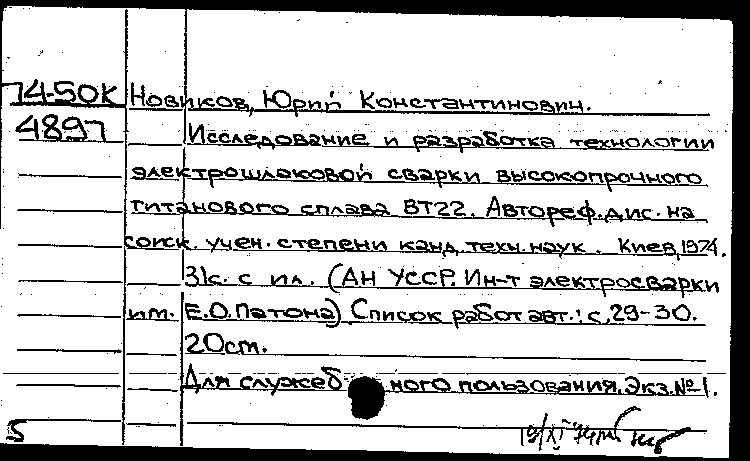 74-50К Новиков, Юрий Константинович.
4897 Исследование и разработка технологии
электрошлаковой сварки высокопрочного
титанового сплава ВТ22. Автореф. дис. на
соиск. учен. степени канд. техн. наук. Киев, 1974.
31с. с ил. (АН УССР. Ин-т электросварки
им. Е.О.Патона) Список работ авт.: с. 29-30.
20cm.
Для служебного пользования. Экз. №1.
5